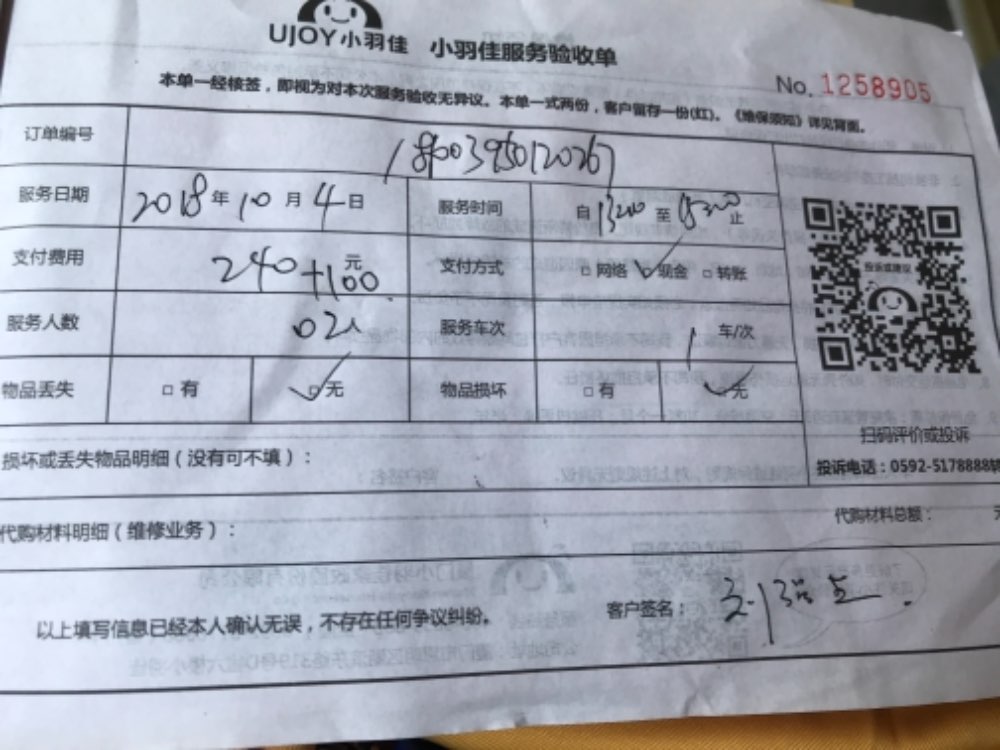 UJOY小羽佳 小羽佳服务验收单
No. 1258905
本单一经核签，即视为对本次服务验收无异议。本单一式两份，客户留存一份(红)。《维保须知》详见背面。
订单编号
服务日期 2018年10月4日 服务时间 自 至 止
支付费用 240+100元 支付方式 □网络 ☑现金 □转账
服务人数 02人 服务车次 1车/次
物品丢失 □有 ☑无 物品损坏 □有 ☑无
投诉或建议
扫码评价或投诉
投诉电话：0592-5178888转
损坏或丢失物品明细（没有可不填）：
代购材料明细（维修业务）： 代购材料总额： 元
以上填写信息已经本人确认无误，不存在任何争议纠纷。 客户签名：